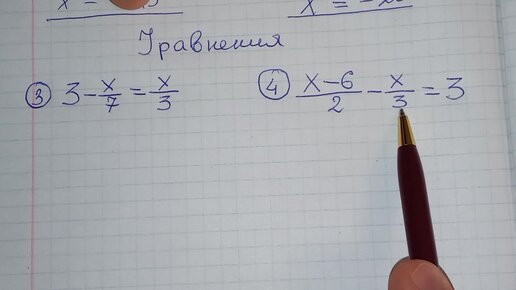 Уравнения
③ 3 - x/7 = x/3
④ (x-6)/2 - x/3 = 3